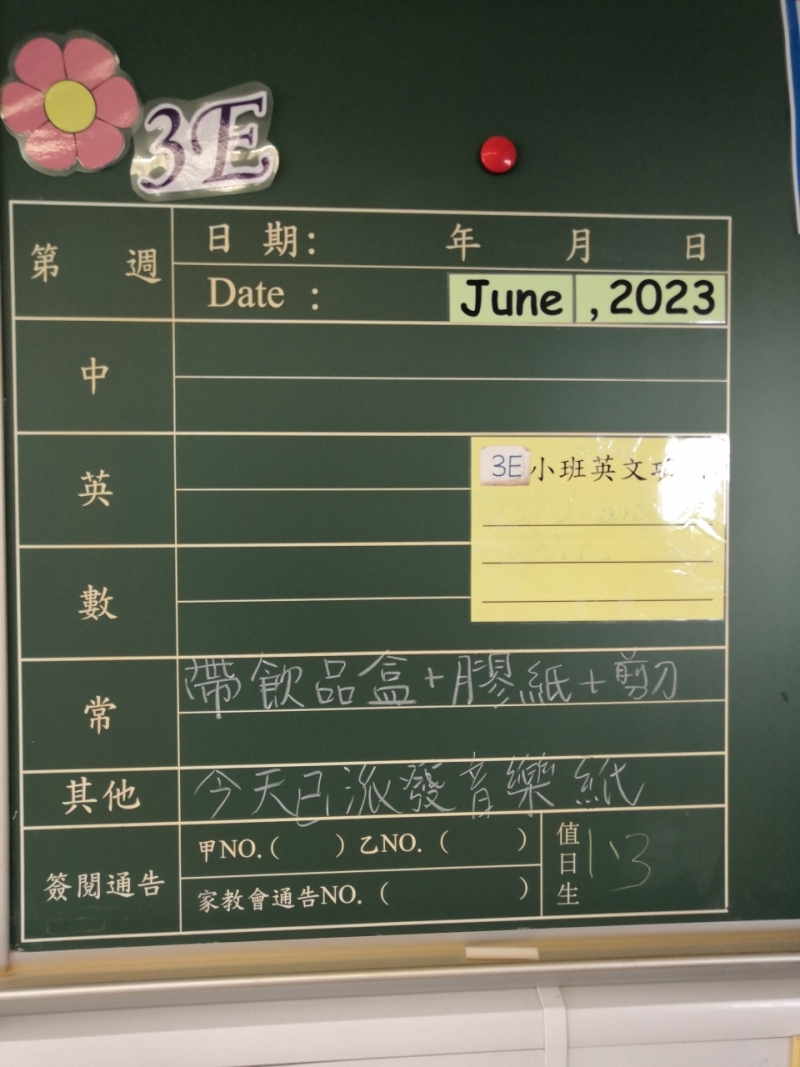 3E
第 週
日 期： 年 月 日
Date : June , 2023
中
英
3E 小班英文
數
常 帶飲品盒+膠紙+剪刀
其他 今天已派發音樂紙
簽閱通告
甲NO.( ) 乙NO.( )
家教會通告NO.( )
值日生